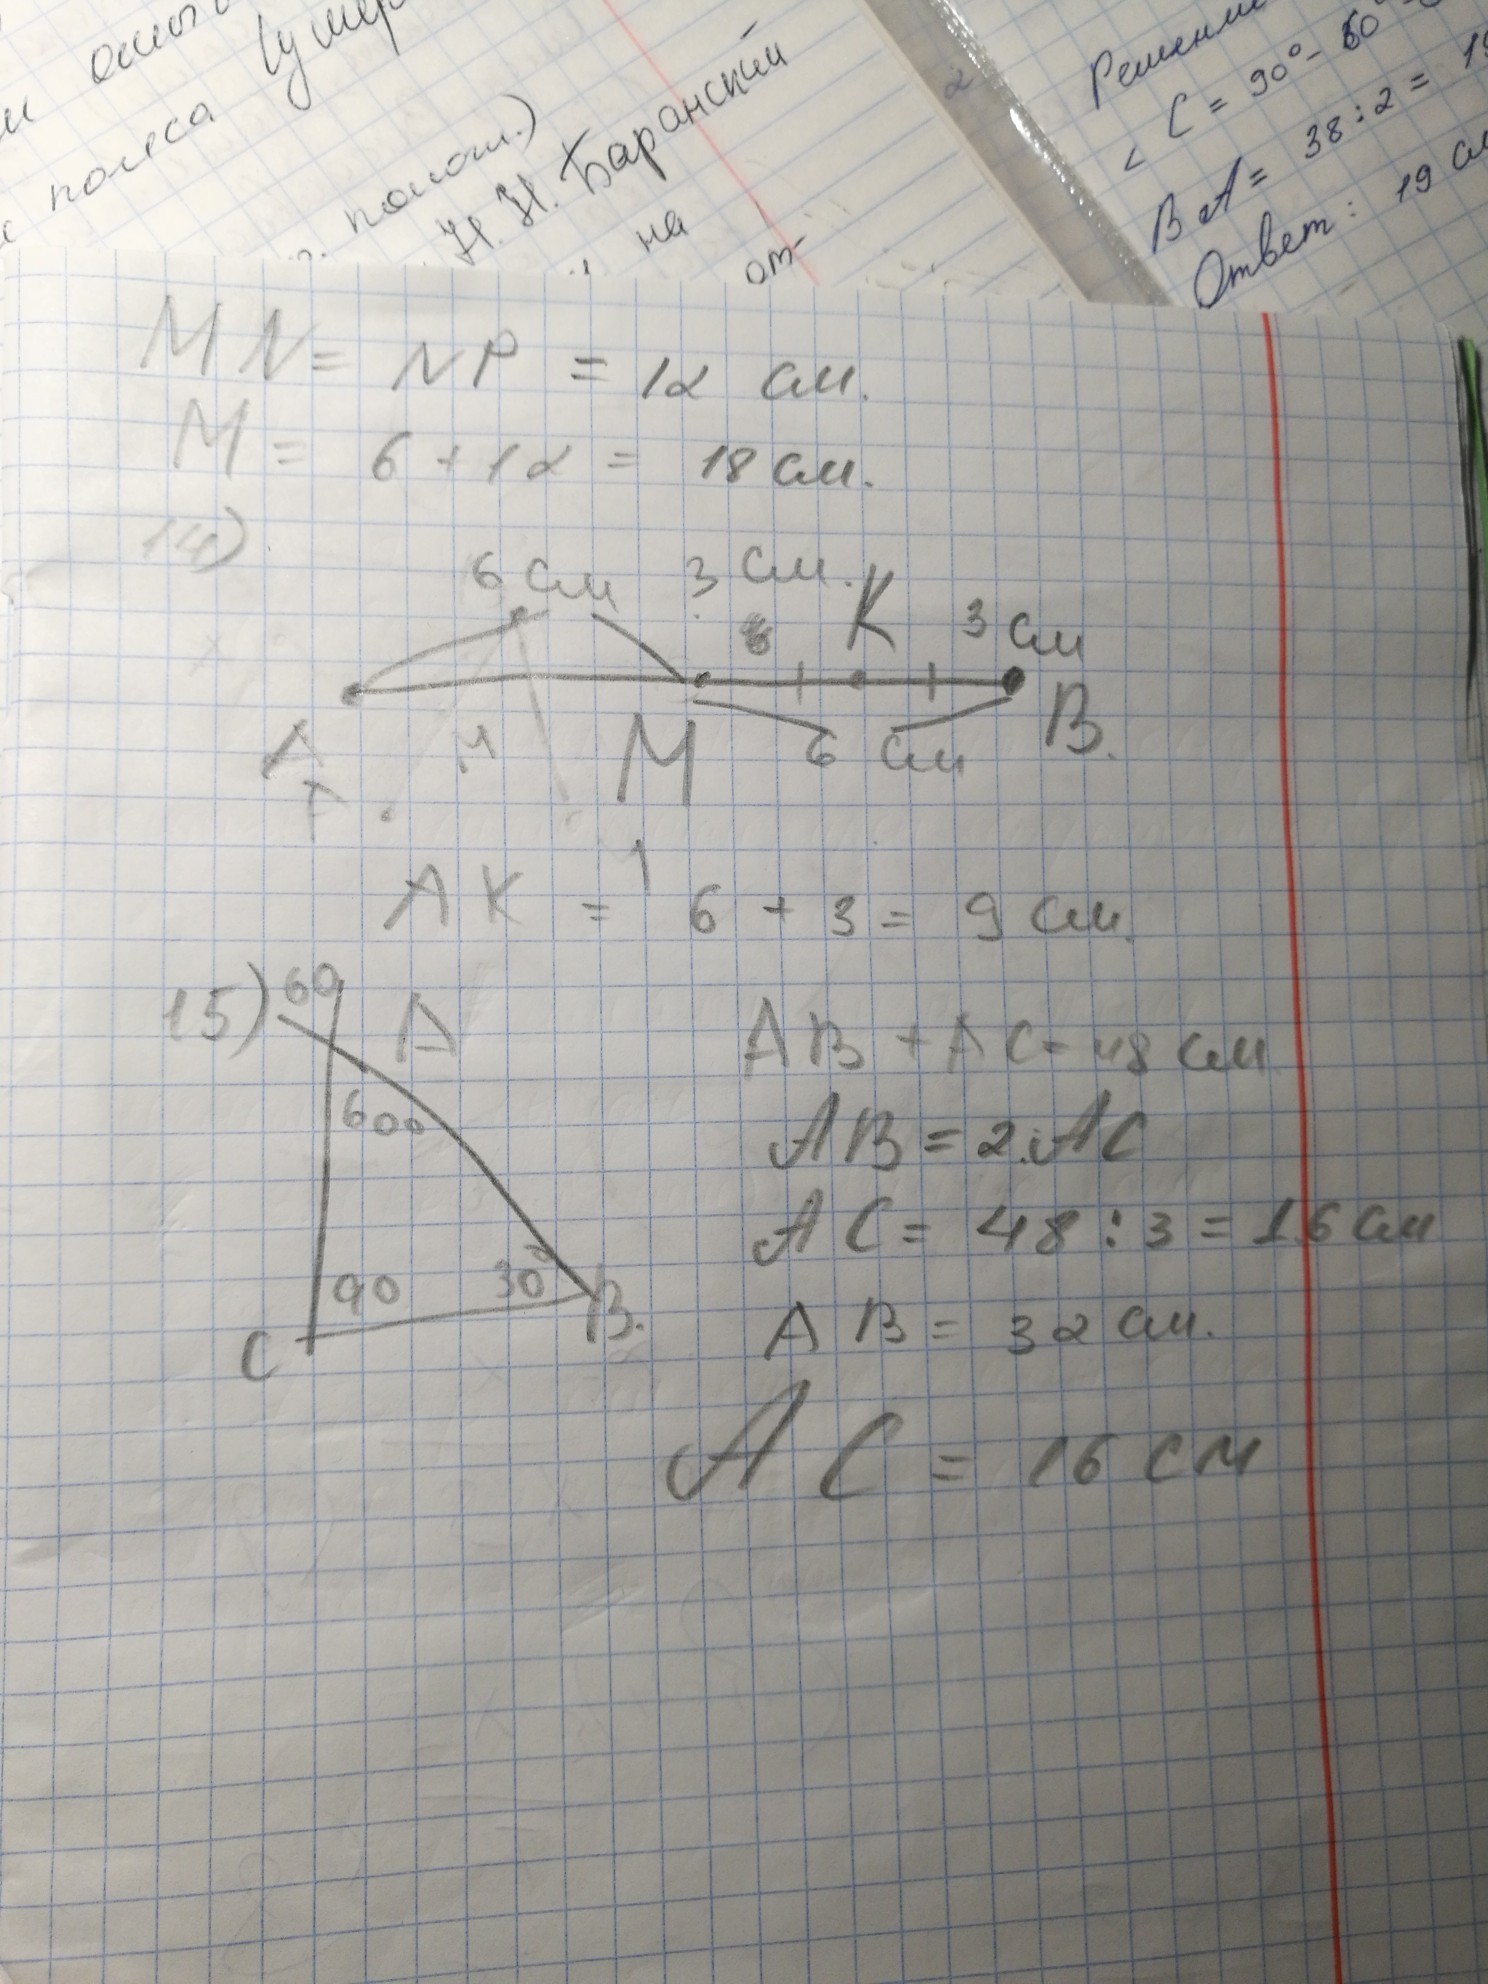 полеса
полот.)
Н. Н. Баранский
на
от-
Решение
∠ C = 90° - 60°
BA = 38 : 2 = 19
Ответ: 19 см
MN = NP = 12 см.
M = 6 + 12 = 18 см.
14)
6 см 3 см. K 3 см
A M 6 см B.
AK = 6 + 3 = 9 см.
15) 60 A
60°
90 30°
C B.
AB + AC = 48 см
AB = 2.AC
AC = 48 : 3 = 16 см
AB = 32 см.
AC = 16 см